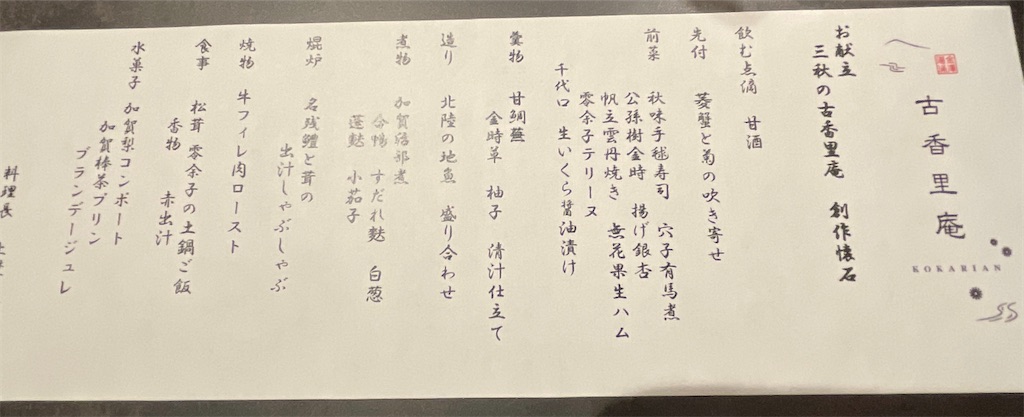 古香里庵
KOKARIAN
お献立
三秋の古香里庵 創作懐石
飲む点滴 甘酒
先付 菱蟹と菊の吹き寄せ
前菜 秋味手毬寿司 穴子有馬煮
公孫樹金時 揚げ銀杏
帆立雲丹焼き 無花果生ハム
零余子テリーヌ
千代口 生いくら醤油漬け
羹物 甘鯛蕪
金時草 柚子 清汁仕立て
造り 北陸の地魚 盛り合わせ
煮物 加賀治部煮
合鴨 すだれ麩 白葱
蓮麩 小茄子
焜炉 名残鱧と茸の
出汁しゃぶしゃぶ
焼物 牛フィレ肉ロースト
食事 松茸 零余子の土鍋ご飯
香物 赤出汁
水菓子 加賀梨コンポート
加賀棒茶プリン
ブランデージュレ
料理長